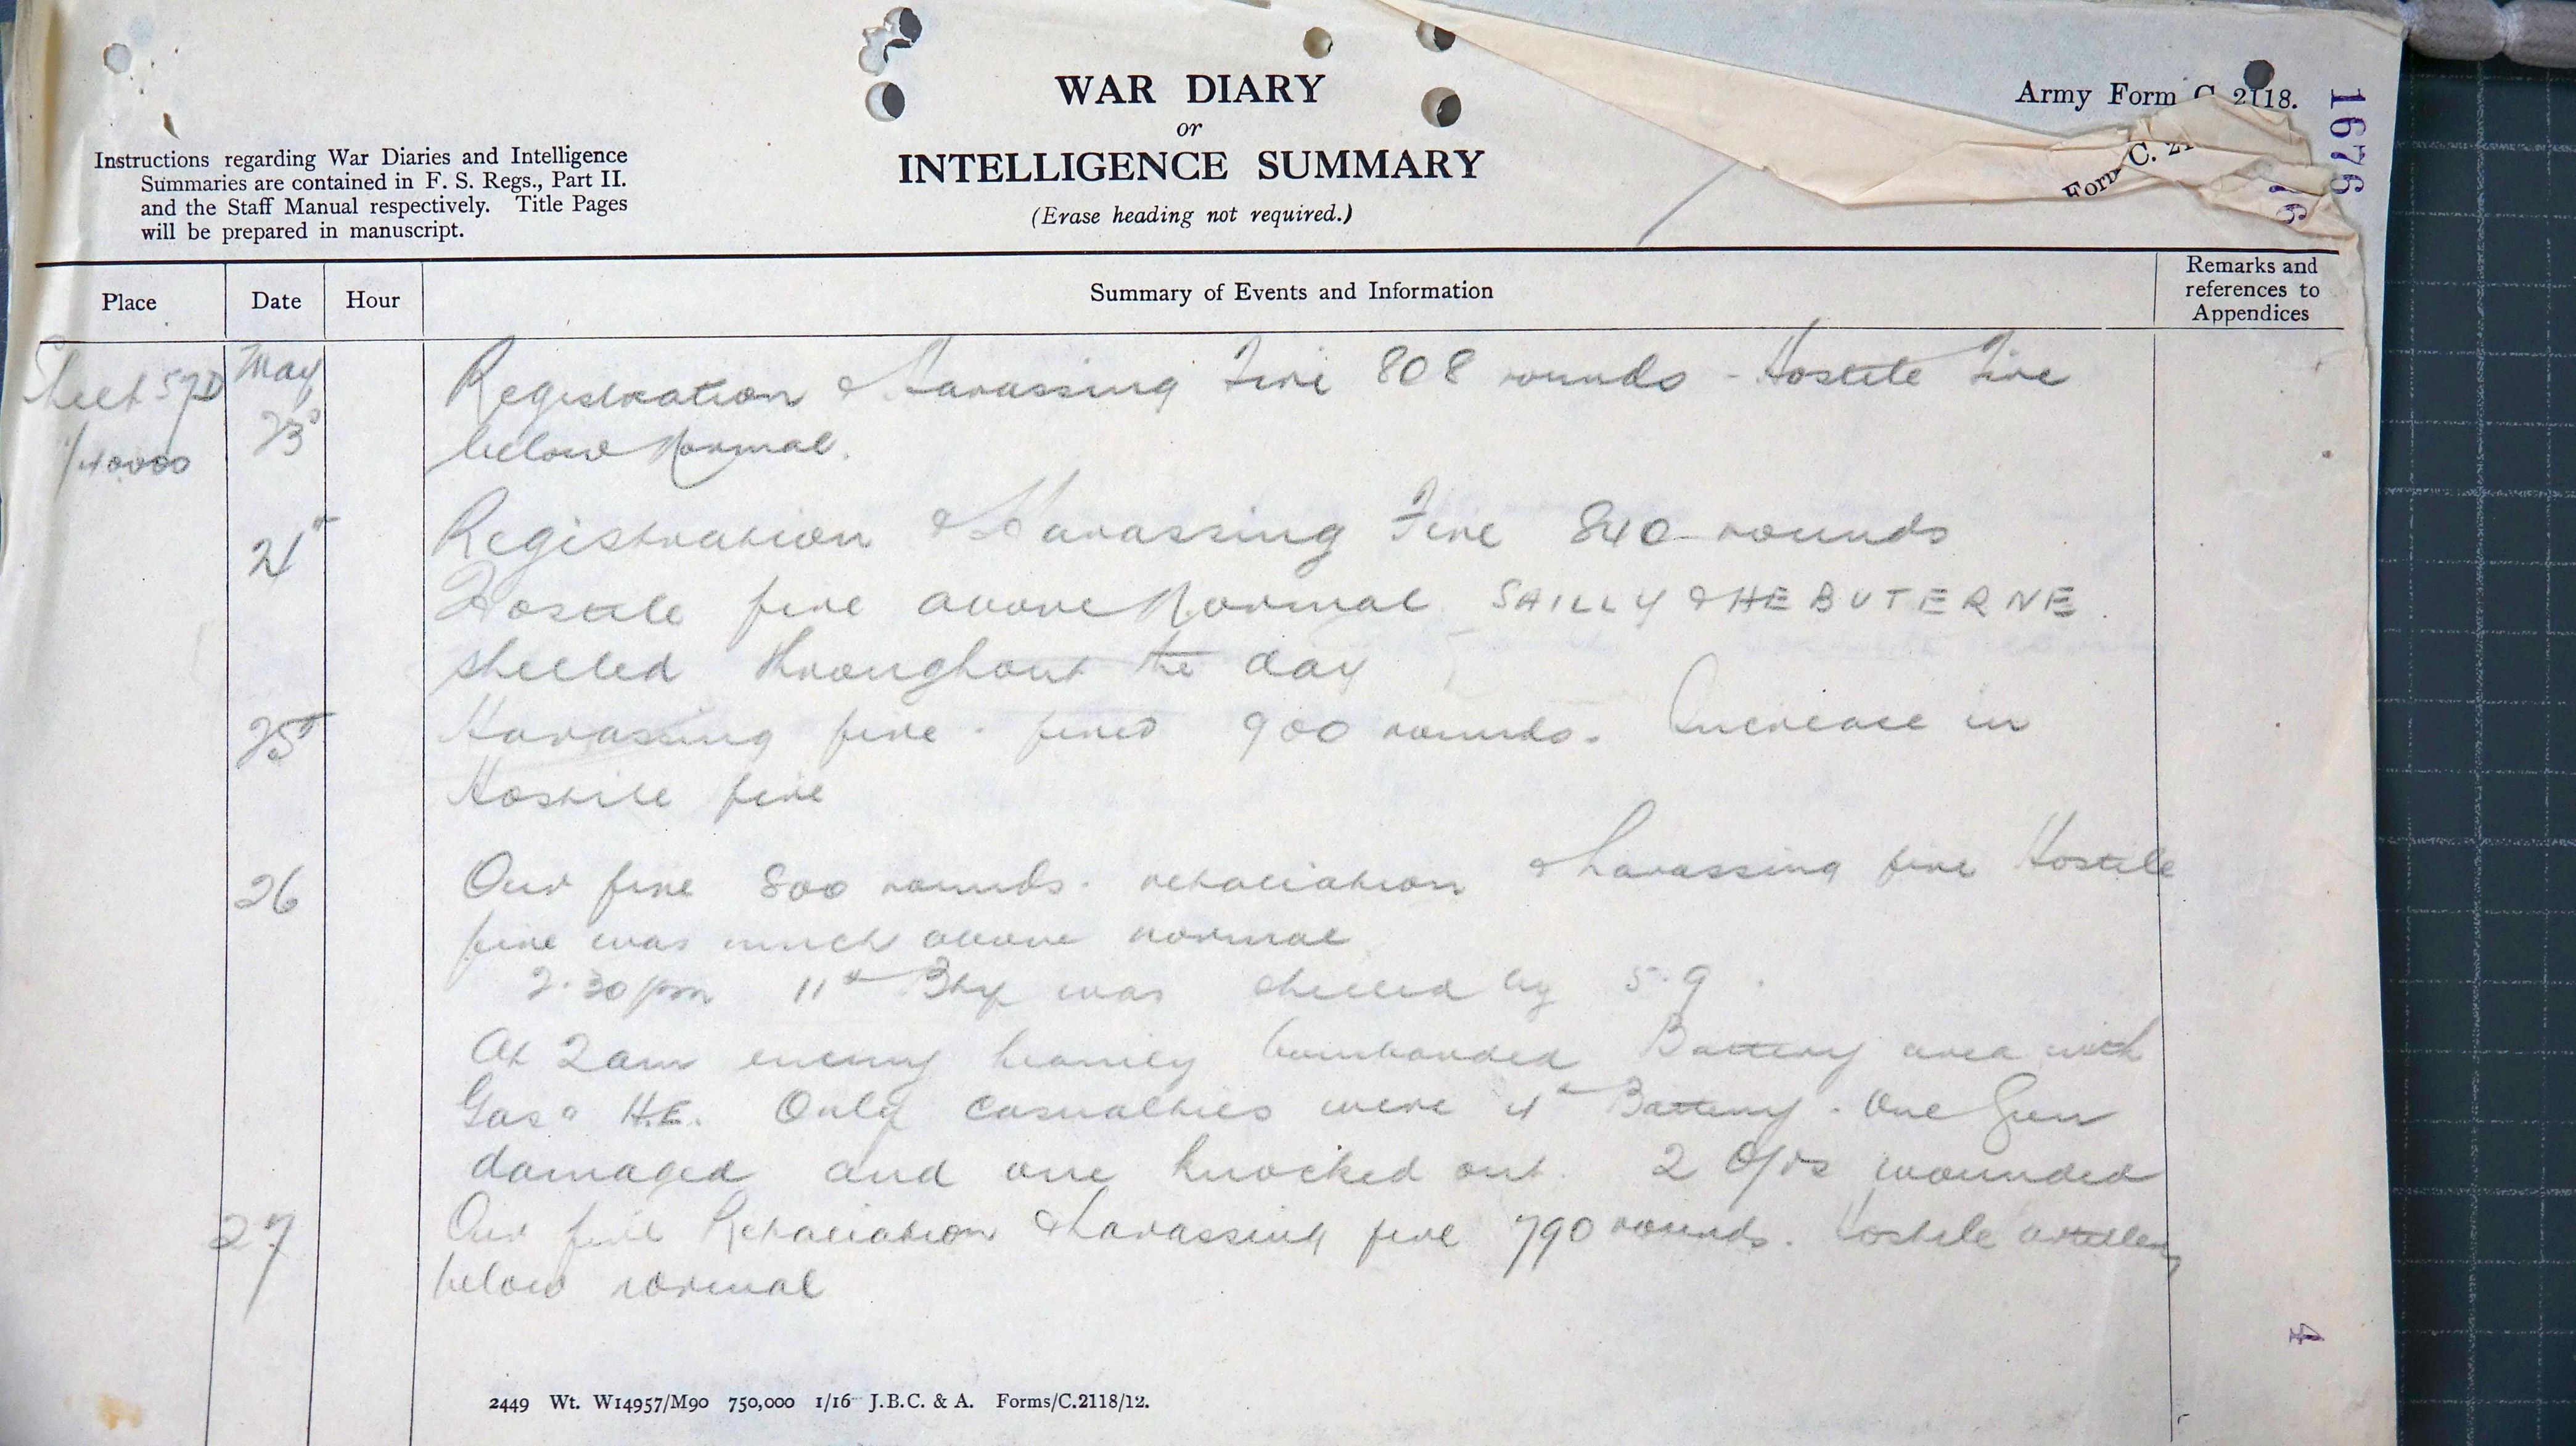 WAR DIARY
or
INTELLIGENCE SUMMARY
(Erase heading not required.)
Army Form C. 2118.
Form C. 21
1676
76
Instructions regarding War Diaries and Intelligence
Summaries are contained in F. S. Regs., Part II.
and the Staff Manual respectively. Title Pages
will be prepared in manuscript.
Place Date Hour Summary of Events and Information Remarks and
references to
Appendices
Sheet 57D May Registration & Harassing Fire 808 rounds - Hostile Fire
1/40000 23 below Normal.
24 Registration & Harassing Fire 840 rounds
Hostile fire above Normal SAILLY & HEBUTERNE.
shelled throughout the day
25 Harassing fire - fired 900 rounds. Increase in
Hostile fire
26 Our fire 800 rounds. retaliation & harassing fire Hostile
fire was much above normal
2.30 pm 11th Bty was shelled by 5.9.
At 2am enemy heavily bombarded Battery area with
Gas & H.E. Only casualties were 4th Battery. One Gun
damaged and one knocked out. 2 O/rs wounded
27 Our fire Retaliation & harassing fire 790 rounds. Hostile artillery
below normal
4
2449 Wt. W14957/M90 750,000 1/16 J.B.C. & A. Forms/C.2118/12.